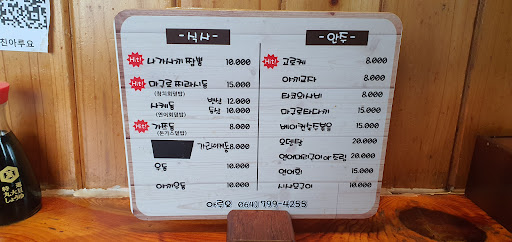 찐아루요
-식사-
Hit! 나가사끼 짬뽕 10.000
Hit! 마구로 찌라시동 15.000
(참치회덮밥)
사케동 벳살 12.000
(연어회덮밥) 등살 10.000
Hit! 가쯔동 8.000
(돈가스덮밥)
가라아게동 8.000
우동 10.000
야끼우동 10.000
-안주-
Hit! 고로케 8.000
야끼교자 8.000
타코와사비 8.000
마구로타다끼 15.000
베이컨숙주볶음 15.000
오뎅탕 20.000
연어머리구이or조림 20.000
연어회 15.000
시샤모구이 10.000
아루요 064)799-4255